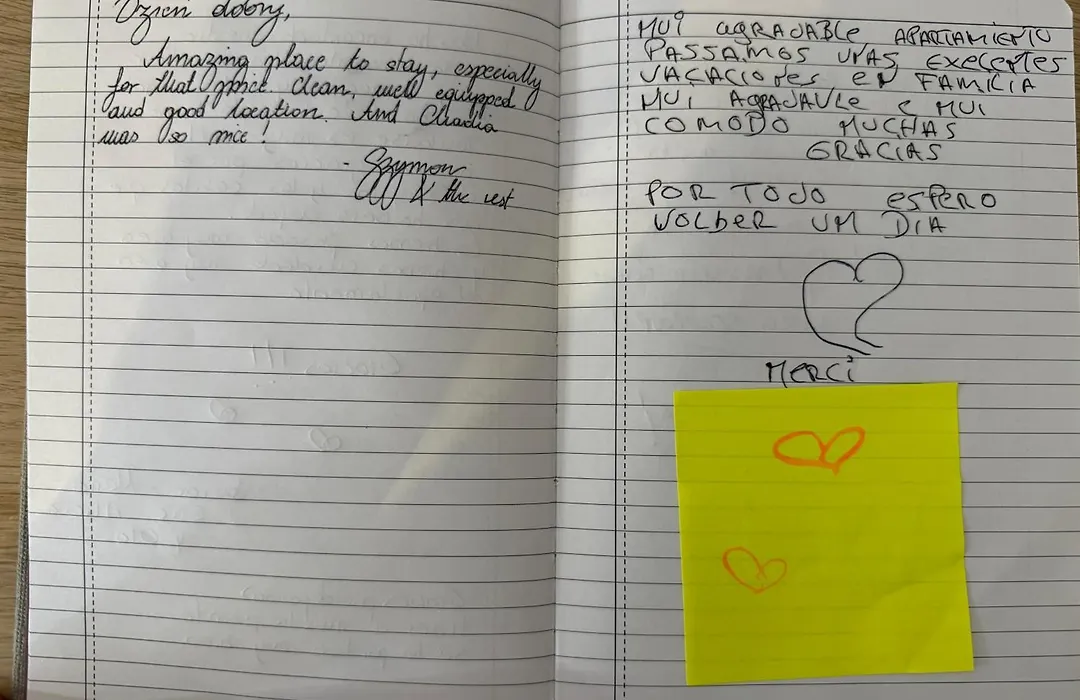 Dzień dobry,
Amazing place to stay, especially
for that price. Clean, well equipped
and good location. And Claudia
was so nice!
- Szymon
& the rest
MUI AGRADABLE APARTAMIENTO
PASSAMOS UNAS EXECENTES
VACACIONES EN FAMILIA
MUI AGRADAVLE E MUI
COMODO MUCHAS
GRACIAS
POR TODO ESPERO
VOLBER UM DIA
MERCI